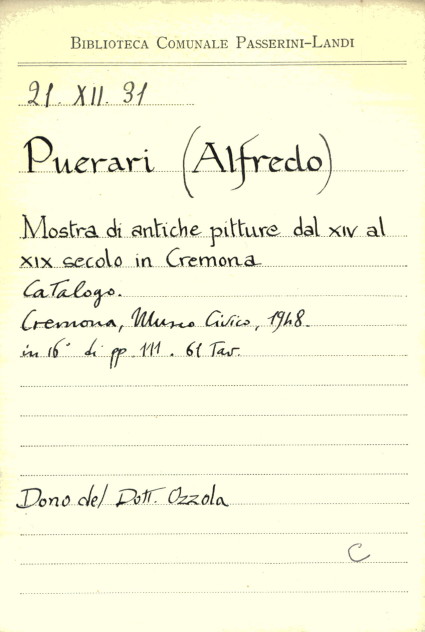 BIBLIOTECA COMUNALE PASSERINI-LANDI
21. XII. 31
Puerari (Alfredo)
Mostra di antiche pitture dal XIV al
XIX secolo in Cremona
Catalogo.
Cremona, Museo Civico, 1948.
in 16° di pp. 111. 61 Tav.
Dono del Dott. Ozzola
C